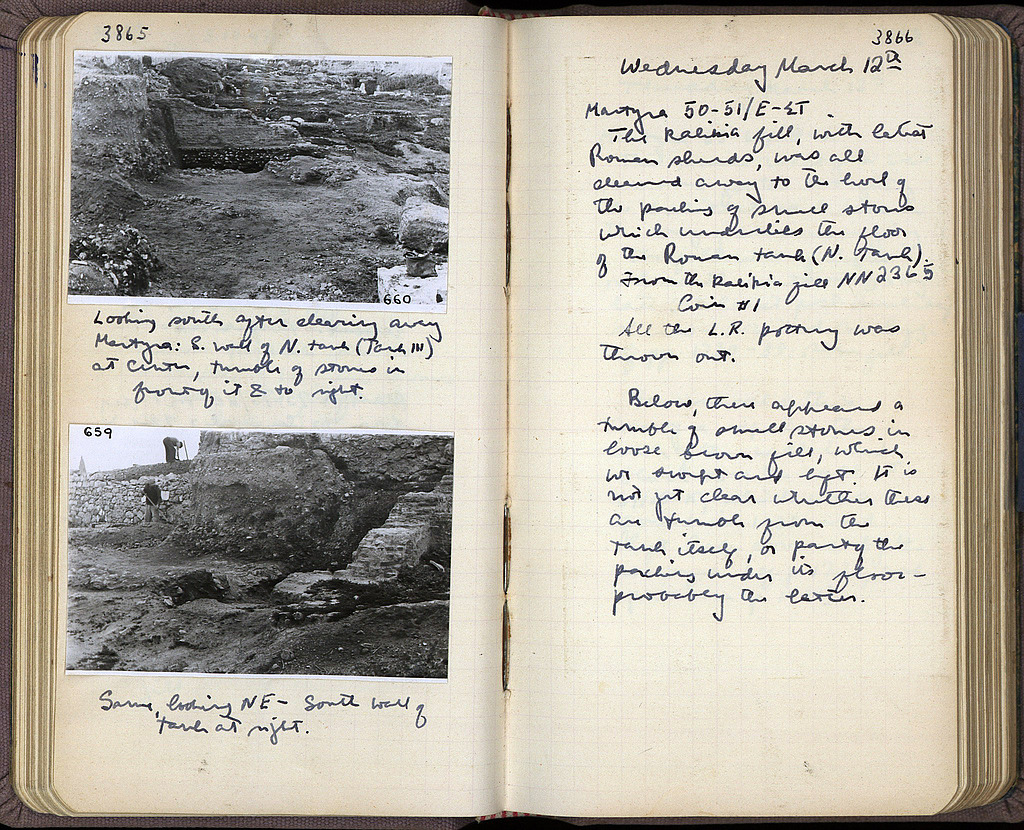 3865
660
Looking south after clearing away
Martyra: S. wall of N. tank (Tank III)
at center, tumble of stones in
front of it & to right.
659
Same, looking NE - South wall of
tank at right.
3866
Wednesday March 12th
Martyra 50-51/E-ΣΤ
The kaliria fill, with latest
Roman sherds, was all
cleared away to the level of
the packing of small stones
which underlies the floor
of the Roman tank (N. tank).
From the kaliria fill NN 2365
Coin #1
All the L.R. pottery was
thrown out.
Below, there appeared a
tumble of small stones in
loose brown fill, which
we swept and left. It is
not yet clear whether these
are tumble from the
tank itself, or partly the
packing under its floor -
probably the latter.